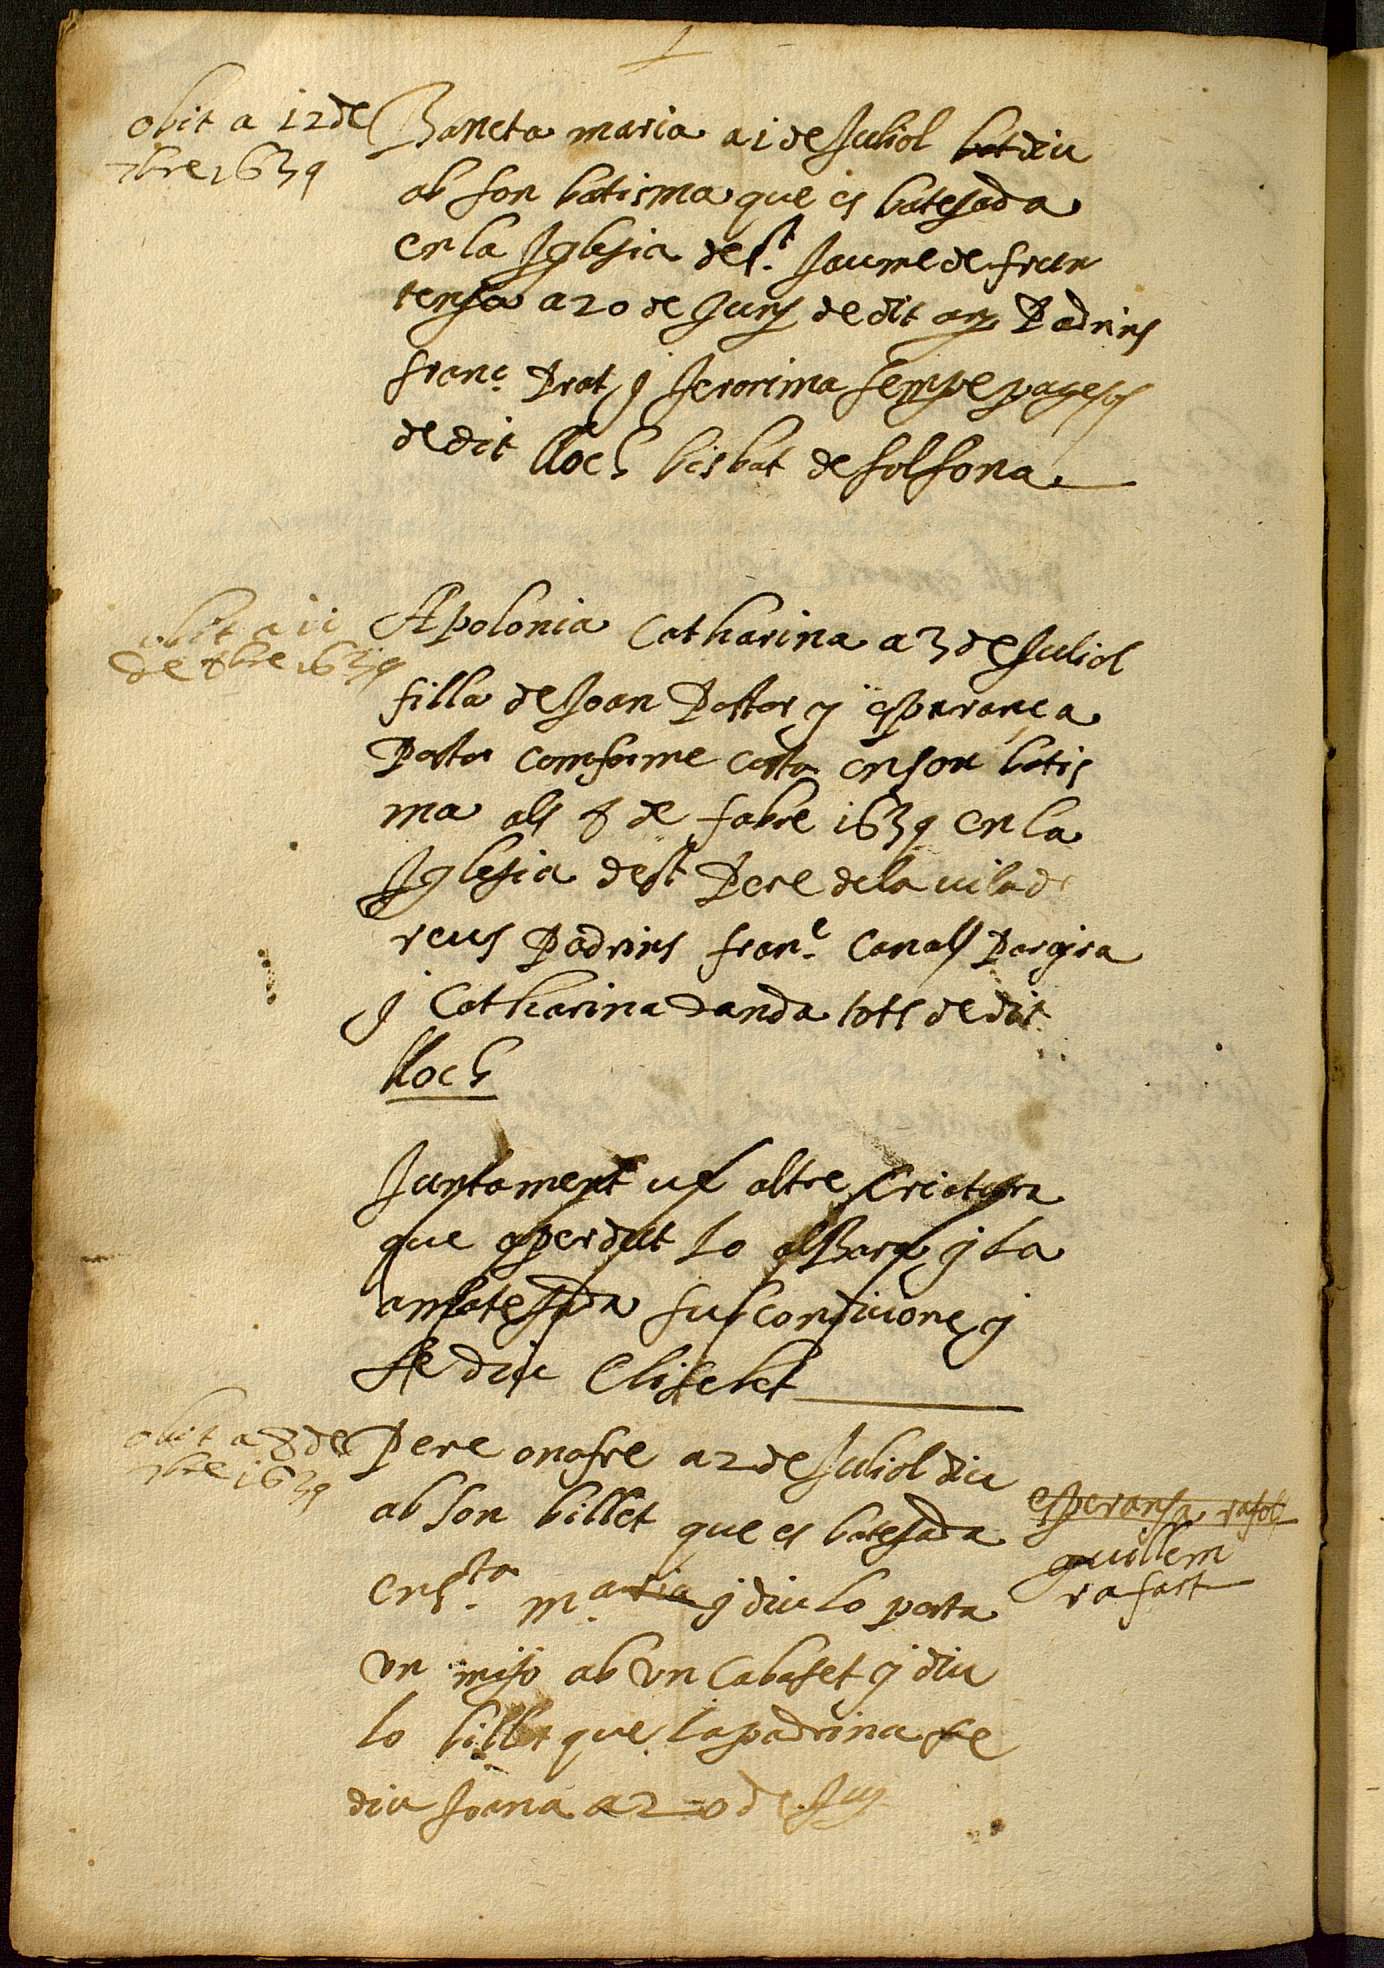 obit a 12 de
7bre 1639
Sancta maria a 1 de Juliol bat diu
ab son batisma que es batejada
en la Iglesia de st. Jaume de fran
tensa a 20 de Juny de dit any Padrins
franc. Prat y Jeronima sempe pagesos
de dit lloch bisbat de solsona
obit a 11
de 8bre 1639
Apolonia Catharina a 3 de Juliol
filla de Joan Pastor y esparança
Pastor comforme costa en son batis
ma als 8 de fabre 1639 en la
Iglesia de st Pere de la vila de
reus Padrins franc. Canals Pargira
y Catharina danda tots de dit
lloch
Juntament un altre Criatura
que a perdut lo albara y la
am batejada sub condicione y
se diu Elisebet
obit a 8 de
7bre 1639
Pere onofre a 2 de Juliol diu
ab son billet que es batejada
en sta. maria y diu lo porta
un miso ab un Cabaset y diu
lo billet que la padrina se
diu Joana a 20 de Juny
esperansa rafols
guillem
rafart